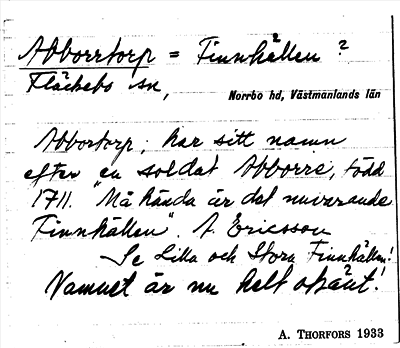 Abborrtorp = Finnhällen?
Fläckebo sn,
Norrbo hd, Västmanlands län
Abbortorp, har sitt namn
efter en soldat Abborre, född
1711. "Må hända är det nuvarande
Finnhällen". A. Ericsson
Se Lilla och Stora Finnhällen!
Namnet är nu helt okänt!
A. THORFORS 1933